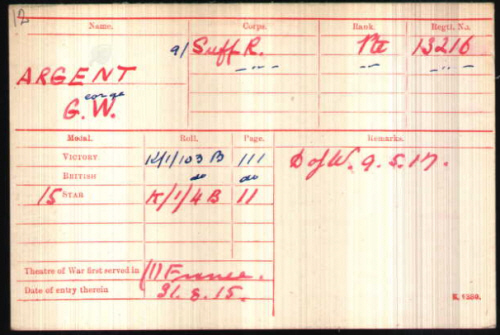 12
Name. Corps. Rank. Regtl. No.
9/ Suff R. Pte 13216
ARGENT — " — — " — — " —
George
G.W.
Medal. Roll. Page. Remarks.
VICTORY K/1/103 B 111 D of W. 9.5.17.
BRITISH do do
15 STAR K/1/4 B 11
Theatre of War first served in (1) France.
Date of entry therein 31.8.15.
K. 1380.